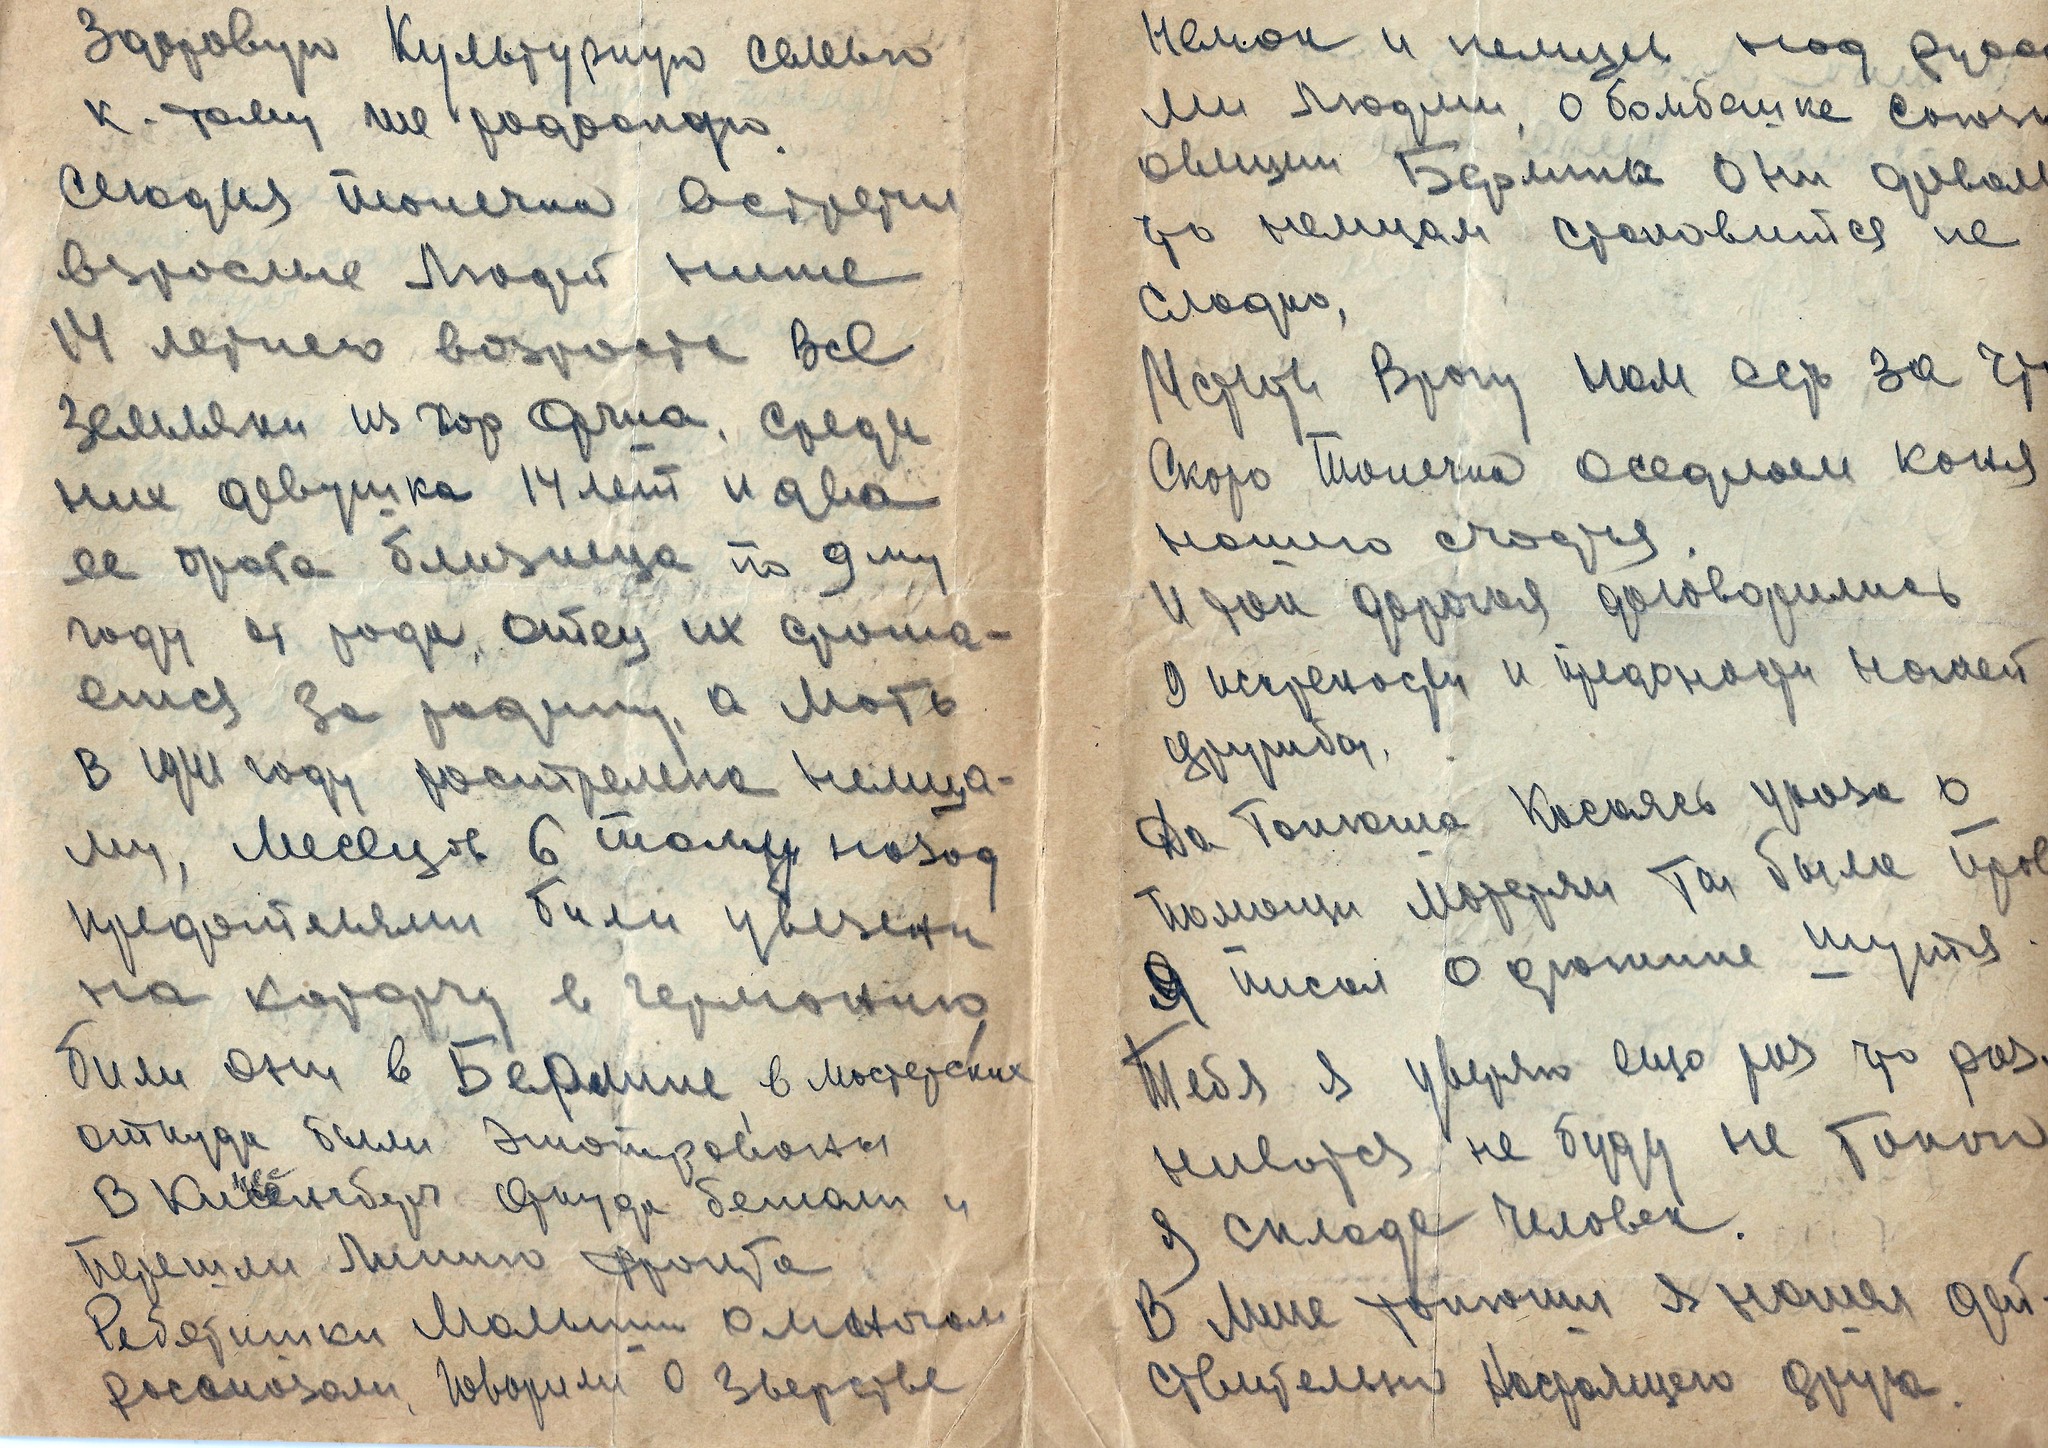 Здоровую Культурную семью
к. тому же
Сегодня Тонечка встретил
взрослые Людей ниже
14 летнего возраста все
Земляки из Хор среди
них девушка 14 лет и два
ее брата близнеца по 9 му
году от рода, отец их сража-
ется за родину, а Мать
в 1941 году расстрелена немца-
му, Месецов 6 тому назад
предателями били увезени
на каторгу в германию,
били они в Берлине, в мастерских
откуда были
В откуда бежали и
перешли Линию фронта
Ребятишки Малыши о многом
россказали, говорили о зверстве
Немок и немцев над русс
ми Людми, о бомбешке союзн
авиции Берлина они довол
что немцам становится не
сладко,
Мстить Врагу нам есть за что
Скоро Тонечка оседлаем коня
нашего счастья.
И так дорогая договорились
о искрености и преданости нашей
дружбы.
Да Тонюша Касаясь указа о
помощи Матерям ты была прав
Я писал о дромине шутя.
Тебя я уверяю ещо раз что раз.
не буду не такого
я складе человек.
В Лице тонюши я нашел дей-
ствительно Настоящего друга.